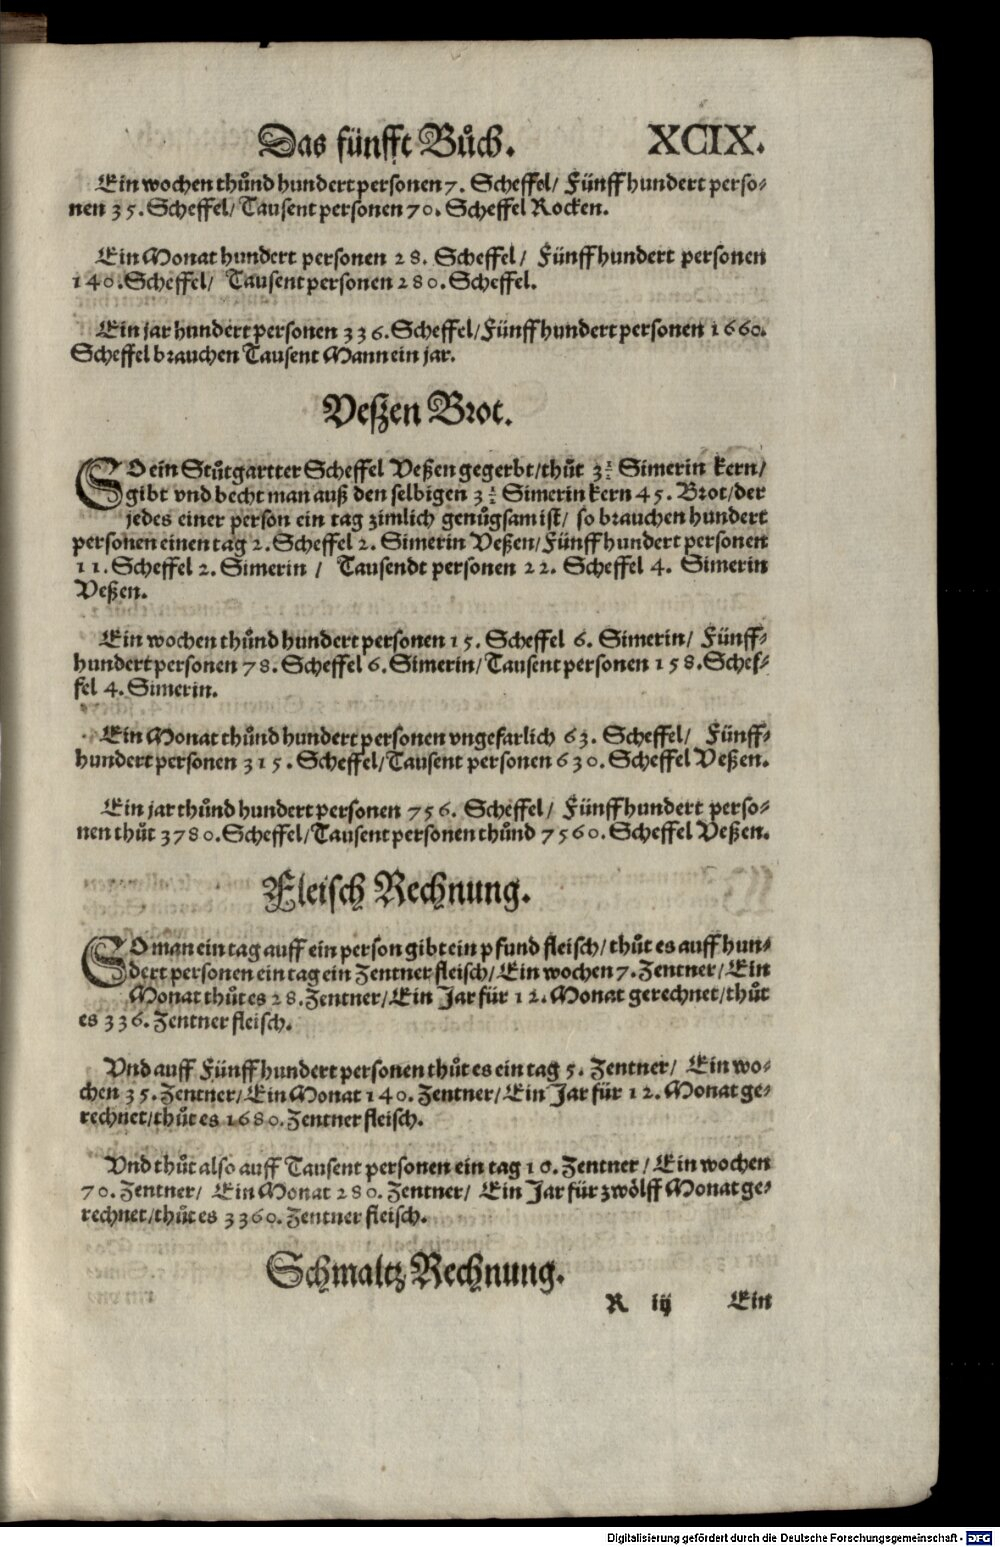 Das fünfft Bůch. XCIX.
Ein wochen thůnd hundert personen 7. Scheffel/ Fünffhundert perso-
nen 35. Scheffel/ Tausent personen 70. Scheffel Rocken.
Ein Monat hundert personen 28. Scheffel/ Fünffhundert personen
140. Scheffel/ Tausent personen 280. Scheffel.
Ein jar hundert personen 336. Scheffel/ Fünffhundert personen 1660.
Scheffel brauchen Tausent Mann ein jar.
Veßen Brot.
SO ein Stůtgartter Scheffel Veßen gegerbt/ thůt 3½ Simerin kern/
gibt vnd becht man auß den selbigen 3½ Simerin kern 45. Brot/ der
jedes einer person ein tag zimlich genůgsam ist/ so brauchen hundert
personen einen tag 2. Scheffel 2. Simerin Veßen/ Fünffhundert personen
11. Scheffel 2. Simerin / Tausendt personen 22. Scheffel 4. Simerin
Veßen.
Ein wochen thůnd hundert personen 15. Scheffel 6. Simerin/ Fünff-
hundert personen 78. Scheffel 6. Simerin/ Tausent personen 158. Schef-
fel 4. Simerin.
Ein Monat thůnd hundert personen vngefarlich 63. Scheffel/ Fünff-
hundert personen 315. Scheffel/ Tausent personen 630. Scheffel Veßen.
Ein jar thůnd hundert personen 756. Scheffel/ Fünffhundert perso-
nen thůt 3780. Scheffel/ Tausent personen thůnd 7560. Scheffel Veßen.
Fleisch Rechnung.
SO man ein tag auff ein person gibt ein pfund fleisch/ thůt es auff hun-
dert personen ein tag ein Zentner fleisch/ Ein wochen 7. Zentner/ Ein
Monat thůt es 28. Zentner/ Ein Jar für 12. Monat gerechnet/ thůt
es 336. Zentner fleisch.
Vnd auff Fünffhundert personen thůt es ein tag 5. Zentner/ Ein wo-
chen 35. Zentner/ Ein Monat 140. Zentner/ Ein Jar für 12. Monat ge-
rechnet/ thůt es 1680. Zentner fleisch.
Vnd thůt also auff Tausent personen ein tag 10. Zentner / Ein wochen
70. Zentner/ Ein Monat 280. Zentner/ Ein Jar für zwölff Monat ge-
rechnet/ thůt es 3360. Zentner fleisch.
Schmaltz Rechnung.
R iij Ein
Digitalisierung gefördert durch die Deutsche Forschungsgemeinschaft - DFG